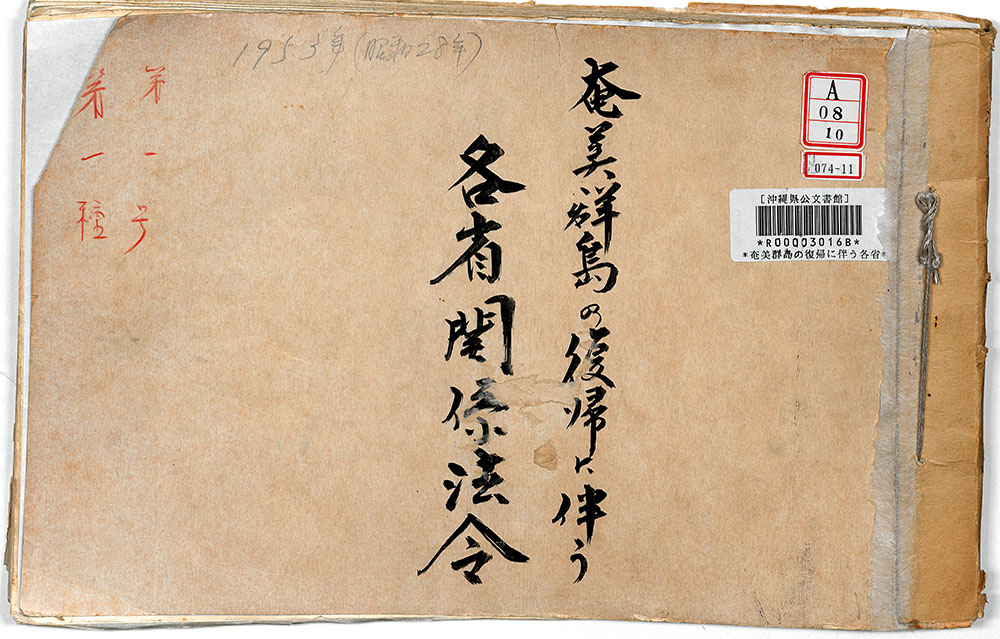 1953年(昭和28年)
奄美群島の復帰に伴う
各省関係法令
第一号
第一種
A
08
10
074-11
[沖縄県公文書館]
*R00003016B*
*奄美群島の復帰に伴う各省*